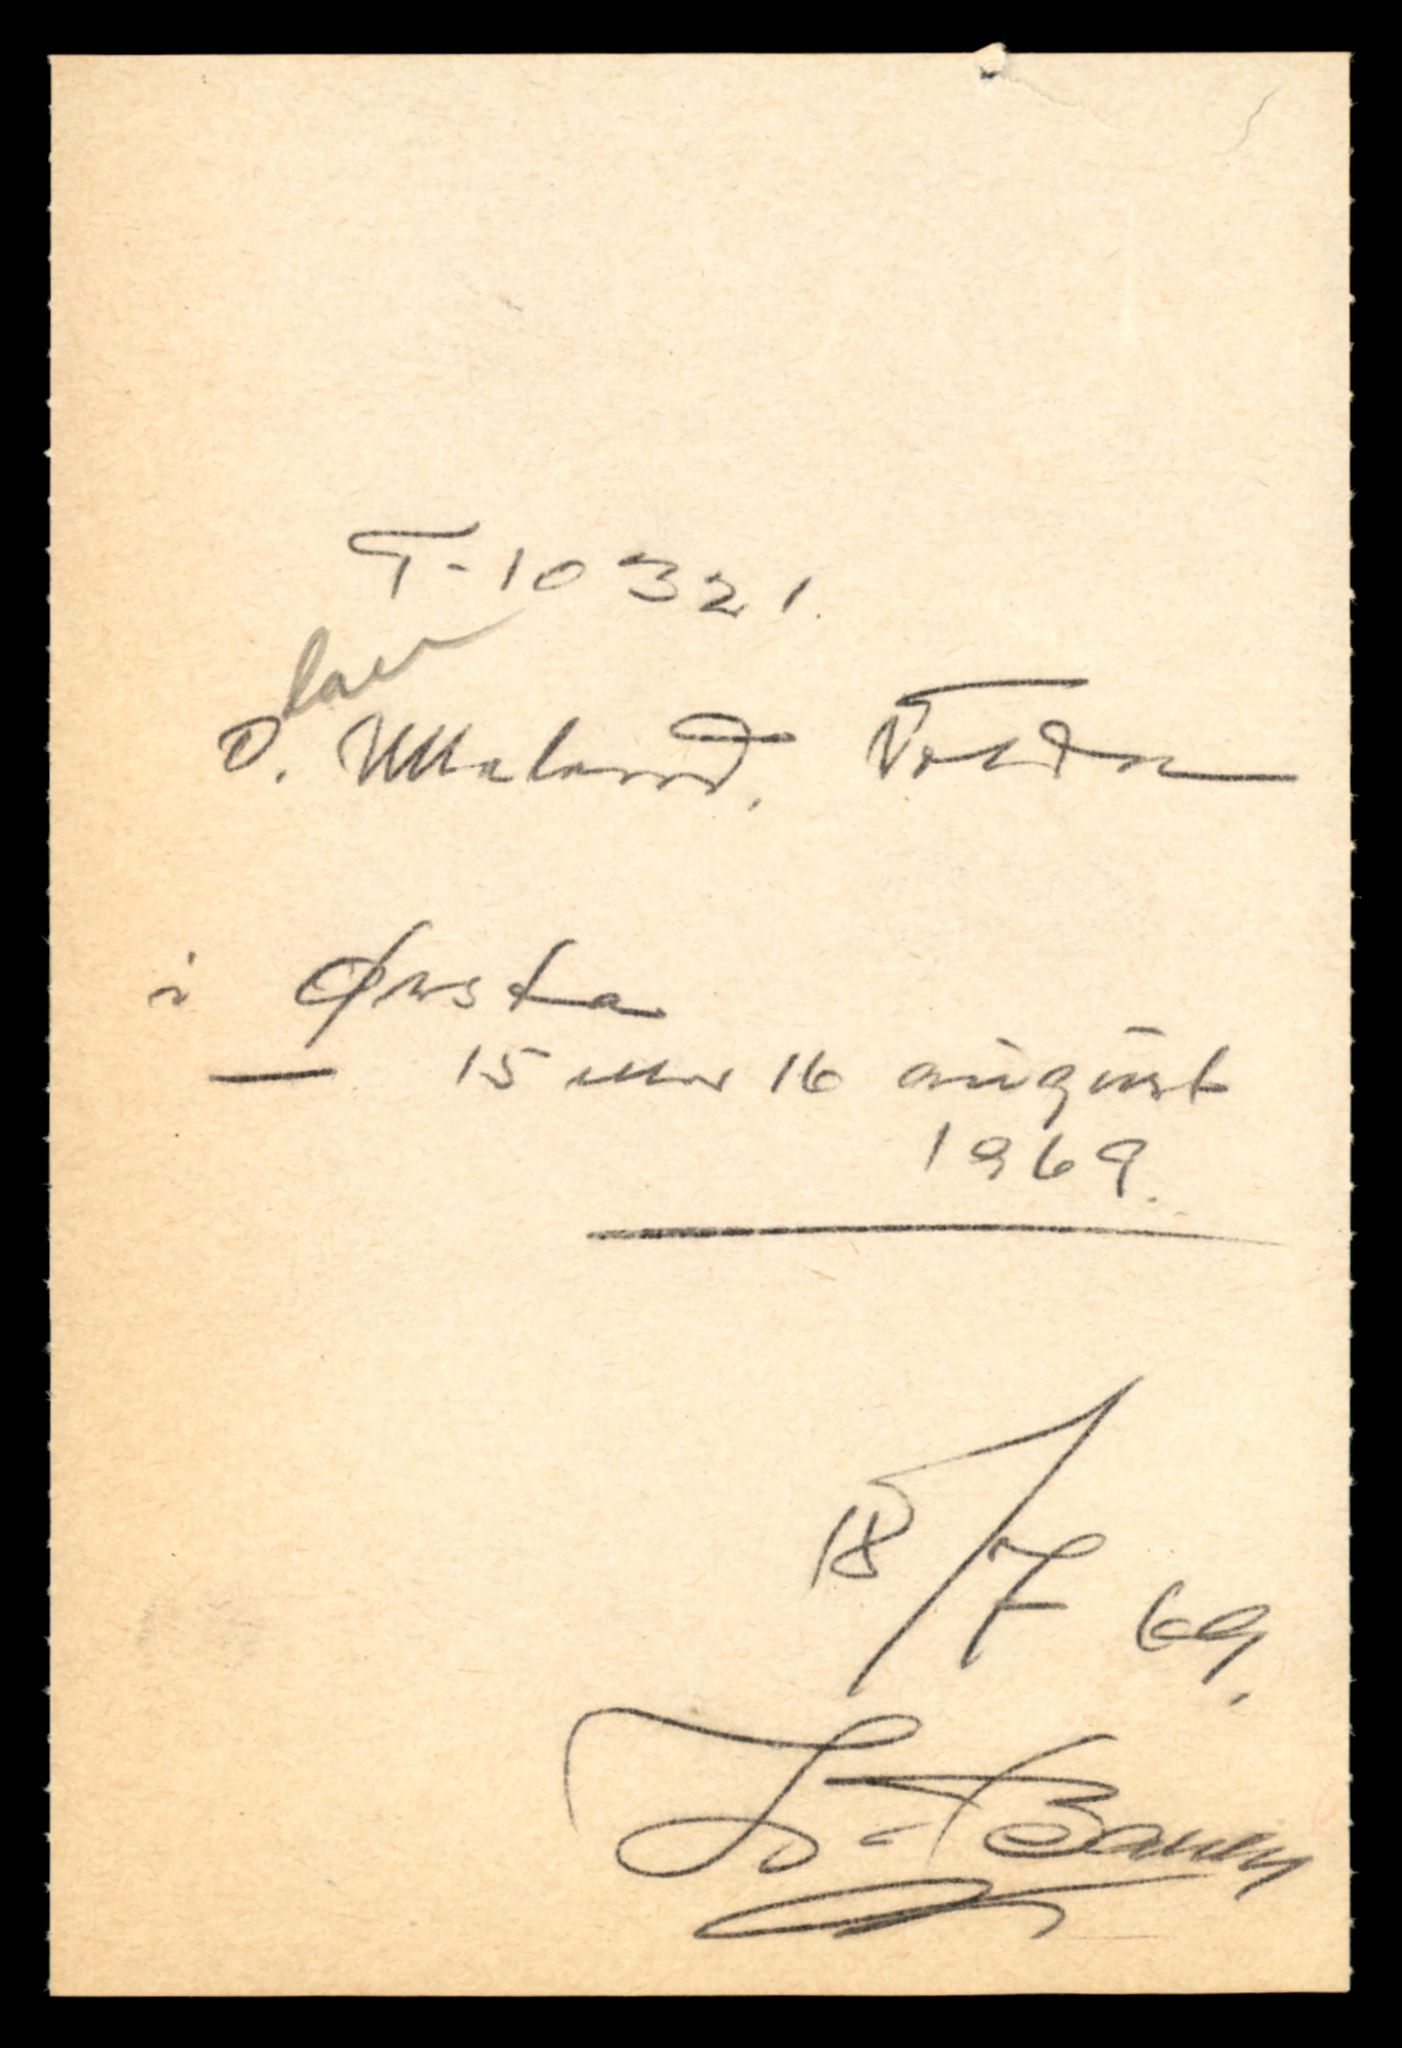 T-10321.
O. Ulaland, Volda
i Ørsta
— 15 eller 16 august
1969.
18/7 69.